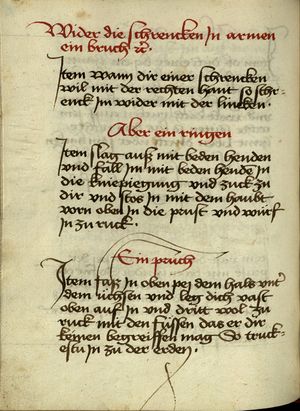 Wider die schrencken In armen
ein bruch ꝛc.
Item wann dir einer schrencken
wil mit der rechten hant so schr-
enck im wider mit der lincken.
Aber ein ringen
Item slag auß mit beden henden
und fall im mit beden hende in
die kniepiegung und zuck zu
dir und stos in mit dem haubt
vorn oben in die prust und würf
in zu ruck.
Ein pruch
Item faß in oben pei dem hals unter
dem üchsen und leg dich vast
oben auf in und dritt wol zu
ruck mit den füssen das er dir
keinen begreiffen mag So truck-
estu in zu der erden.